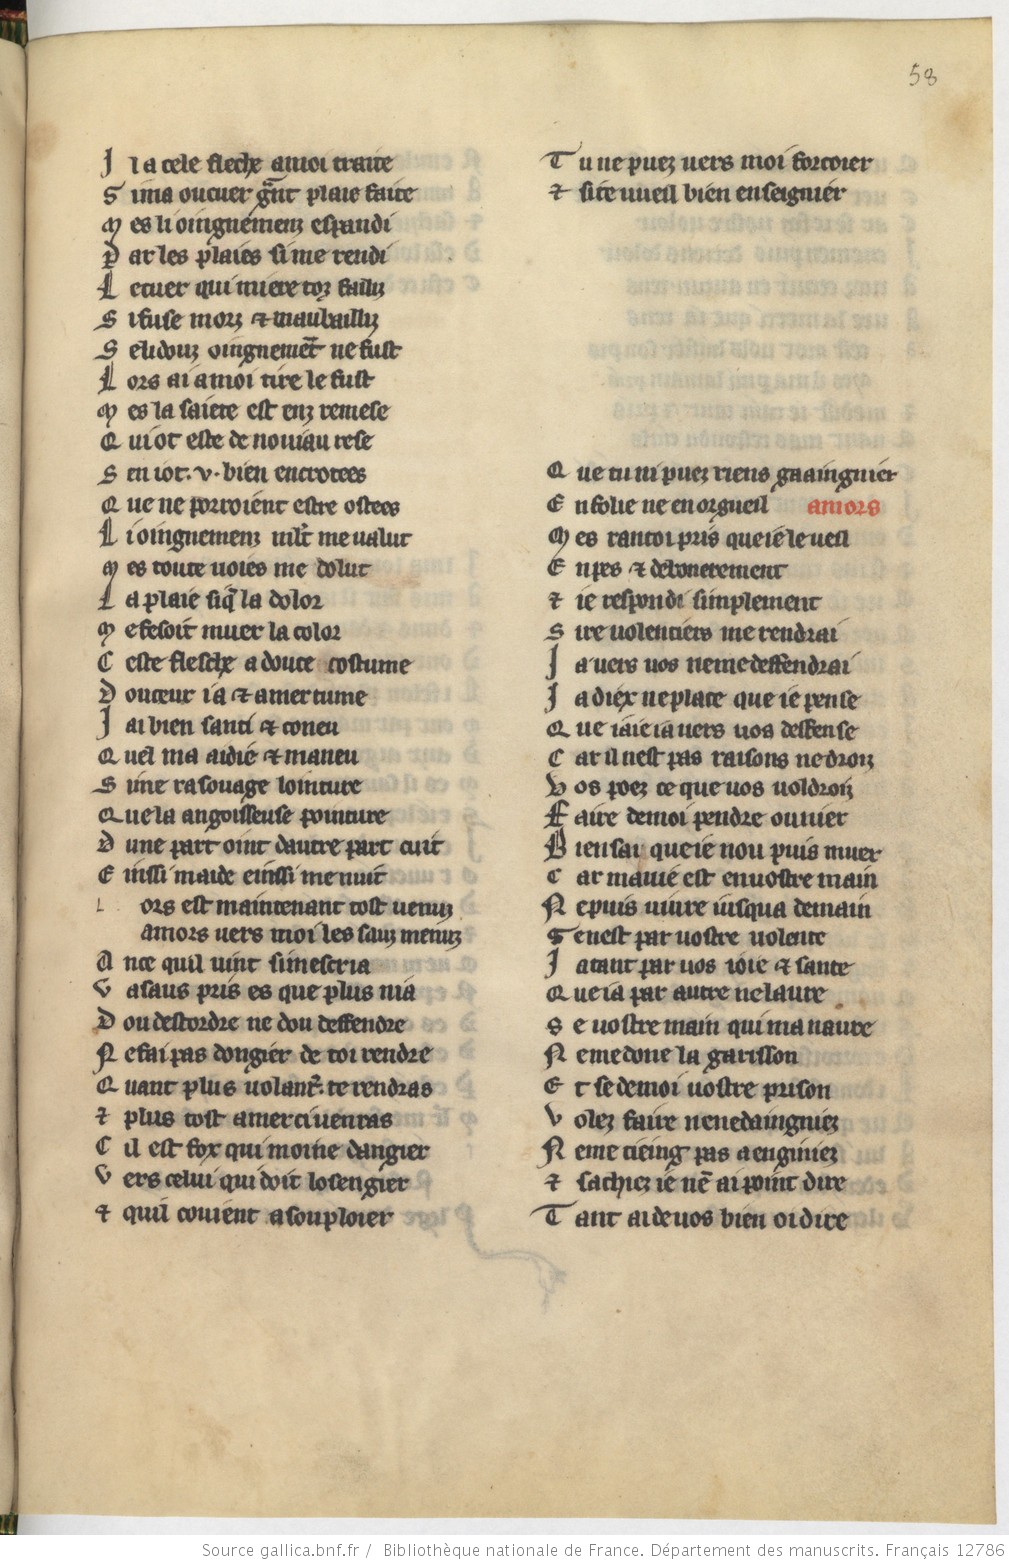 58
J l a cele fleche a moi traite
S i ma ou cuer gͣnt plaie faite
M es li oingnemenz espandi
P ar les plaies si me rendi
L e cuer qui miere toz faillz
S i fuse morz ⁊ maubaillz
S e li douz oingnemet̃ ne fust
L ors ai a moi tire le fust
M es la saiete est enz remese
Q ui ot este de nouiau rese
S en i ot .v. bien encrotees
Q ue ne porroient estre ostees
L i oingnemenz mlt̃ me valut
M es toute uoies me dolut
L a plaie si q̃ la dolor
M e fesoit muer la color
C este flesche a douce costume
D ouceur i a ⁊ amertume
J ai bien santi ⁊ coneu
Q uel ma aidie ⁊ m aneu
S i me rasouage lointure
Q ue la angoisseuse pointure
D une part oint dautre part cuit
E inssi maide einssi me nuit
l ors est maintenant tost uenuz
amors uers moi les sauz menuz
A nce quil uint si mescria
V asaus pris es que plus ni a
D ou destordre ne dou deffendre
N e fai pas dongier de toi rendre
Q uant plus volant̃. te rendras
⁊ plus tost a merci uenras
C il est fox qui moine dangier
V ers celui qui doit losengier
⁊ quil couient a souploier
T u ne puez uers moi forcoier
⁊ si te uueil bien enseignier
Q ue tu ni puez riens gaaingnier
E n folie ne en orgueil amors
M es rant toi pris que ie le ueil
E n pes ⁊ debonerement
⁊ ie respondi simplement
S ire uolentiers me rendrai
J a uers uos ne me deffendrai
J a diex ne place que ie pense
Q ue iaie ia uers uos deffense
C ar il nest pas raisons ne droiz
V os poez ce que uos uoldroiz
F aire de moi pendre ou tuer
B ien sai que ie nou puis muer
C ar ma uie est en uostre main
N e puis uiure iusqua demain
S e nest par uostre uolente
J atant par uos ioie ⁊ sante
Q ue ia par autre ne laure
S e uostre main qui ma naure
N e me done la garisson
E t se de moi uostre prison
V olez faire ne ne daingniez
N e me tieing pas a enginiez
⁊ sachiez ie nẽ ai point dire
T ant ai de uos bien oi dire
Source gallica.bnf.fr / Bibliothèque nationale de France. Département des manuscrits. Français 12786